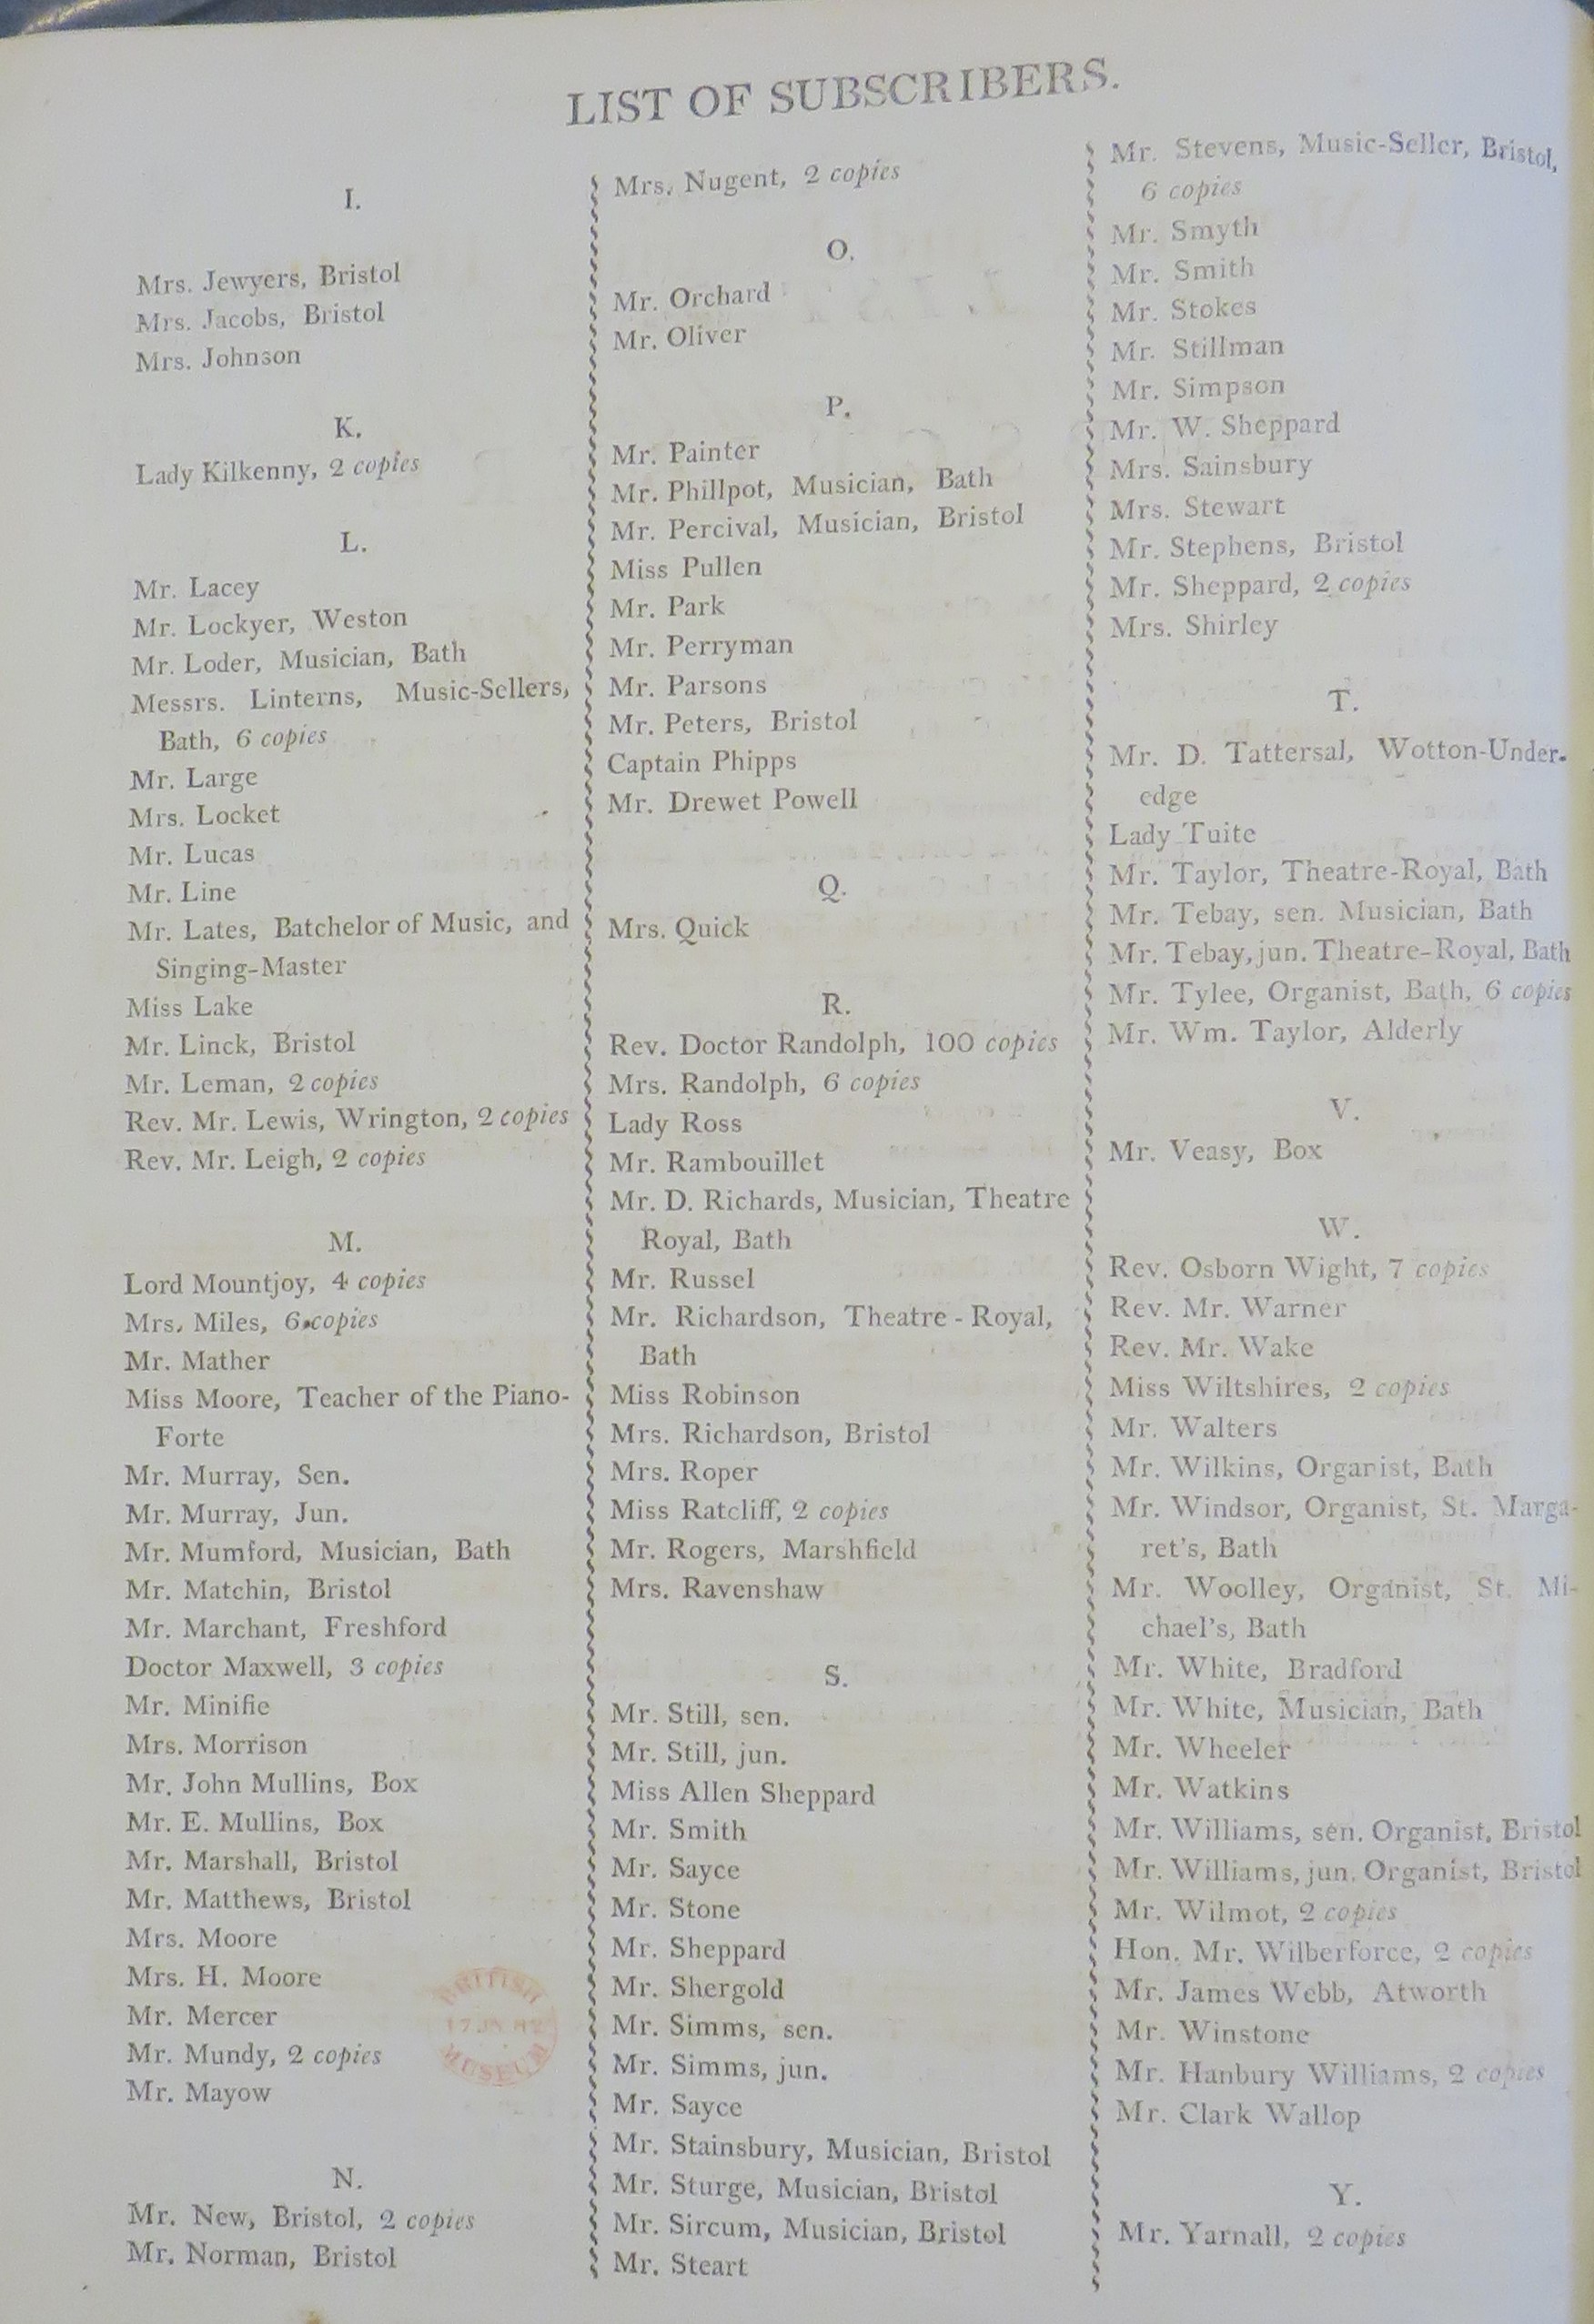 LIST OF SUBSCRIBERS.
I.
Mrs. Jewyers, Bristol
Mrs. Jacobs, Bristol
Mrs. Johnson
K.
Lady Kilkenny, 2 copies
L.
Mr. Lacey
Mr. Lockyer, Weston
Mr. Loder, Musician, Bath
Messrs. Linterns, Music-Sellers,
Bath, 6 copies
Mr. Large
Mrs. Locket
Mr. Lucas
Mr. Line
Mr. Lates, Batchelor of Music, and
Singing-Master
Miss Lake
Mr. Linck, Bristol
Mr. Leman, 2 copies
Rev. Mr. Lewis, Wrington, 2 copies
Rev. Mr. Leigh, 2 copies
M.
Lord Mountjoy, 4 copies
Mrs. Miles, 6 copies
Mr. Mather
Miss Moore, Teacher of the Piano-
Forte
Mr. Murray, Sen.
Mr. Murray, Jun.
Mr. Mumford, Musician, Bath
Mr. Matchin, Bristol
Mr. Marchant, Freshford
Doctor Maxwell, 3 copies
Mr. Minifie
Mrs. Morrison
Mr. John Mullins, Box
Mr. E. Mullins, Box
Mr. Marshall, Bristol
Mr. Matthews, Bristol
Mrs. Moore
Mrs. H. Moore
Mr. Mercer
Mr. Mundy, 2 copies
Mr. Mayow
BRITISH
MUSEUM
N.
Mr. New, Bristol, 2 copies
Mr. Norman, Bristol
Mrs. Nugent, 2 copies
O.
Mr. Orchard
Mr. Oliver
P.
Mr. Painter
Mr. Phillpot, Musician, Bath
Mr. Percival, Musician, Bristol
Miss Pullen
Mr. Park
Mr. Perryman
Mr. Parsons
Mr. Peters, Bristol
Captain Phipps
Mr. Drewet Powell
Q.
Mrs. Quick
R.
Rev. Doctor Randolph, 100 copies
Mrs. Randolph, 6 copies
Lady Ross
Mr. Rambouillet
Mr. D. Richards, Musician, Theatre
Royal, Bath
Mr. Russel
Mr. Richardson, Theatre-Royal,
Bath
Miss Robinson
Mrs. Richardson, Bristol
Mrs. Roper
Miss Ratcliff, 2 copies
Mr. Rogers, Marshfield
Mrs. Ravenshaw
S.
Mr. Still, sen.
Mr. Still, jun.
Miss Allen Sheppard
Mr. Smith
Mr. Sayce
Mr. Stone
Mr. Sheppard
Mr. Shergold
Mr. Simms, sen.
Mr. Simms, jun.
Mr. Sayce
Mr. Stainsbury, Musician, Bristol
Mr. Sturge, Musician, Bristol
Mr. Sircum, Musician, Bristol
Mr. Steart
Mr. Stevens, Music-Seller, Bristol,
6 copies
Mr. Smyth
Mr. Smith
Mr. Stokes
Mr. Stillman
Mr. Simpson
Mr. W. Sheppard
Mrs. Sainsbury
Mrs. Stewart
Mr. Stephens, Bristol
Mr. Sheppard, 2 copies
Mrs. Shirley
T.
Mr. D. Tattersal, Wotton-Under-
edge
Lady Tuite
Mr. Taylor, Theatre-Royal, Bath
Mr. Tebay, sen. Musician, Bath
Mr. Tebay, jun. Theatre-Royal, Bath
Mr. Tylee, Organist, Bath, 6 copies
Mr. Wm. Taylor, Alderly
V.
Mr. Veasy, Box
W.
Rev. Osborn Wight, 7 copies
Rev. Mr. Warner
Rev. Mr. Wake
Miss Wiltshires, 2 copies
Mr. Walters
Mr. Wilkins, Organist, Bath
Mr. Windsor, Organist, St. Marga-
ret's, Bath
Mr. Woolley, Organist, St. Mi-
chael's, Bath
Mr. White, Bradford
Mr. White, Musician, Bath
Mr. Wheeler
Mr. Watkins
Mr. Williams, sen. Organist, Bristol
Mr. Williams, jun. Organist, Bristol
Mr. Wilmot, 2 copies
Hon. Mr. Wilberforce, 2 copies
Mr. James Webb, Atworth
Mr. Winstone
Mr. Hanbury Williams, 2 copies
Mr. Clark Wallop
Y.
Mr. Yarnall, 2 copies